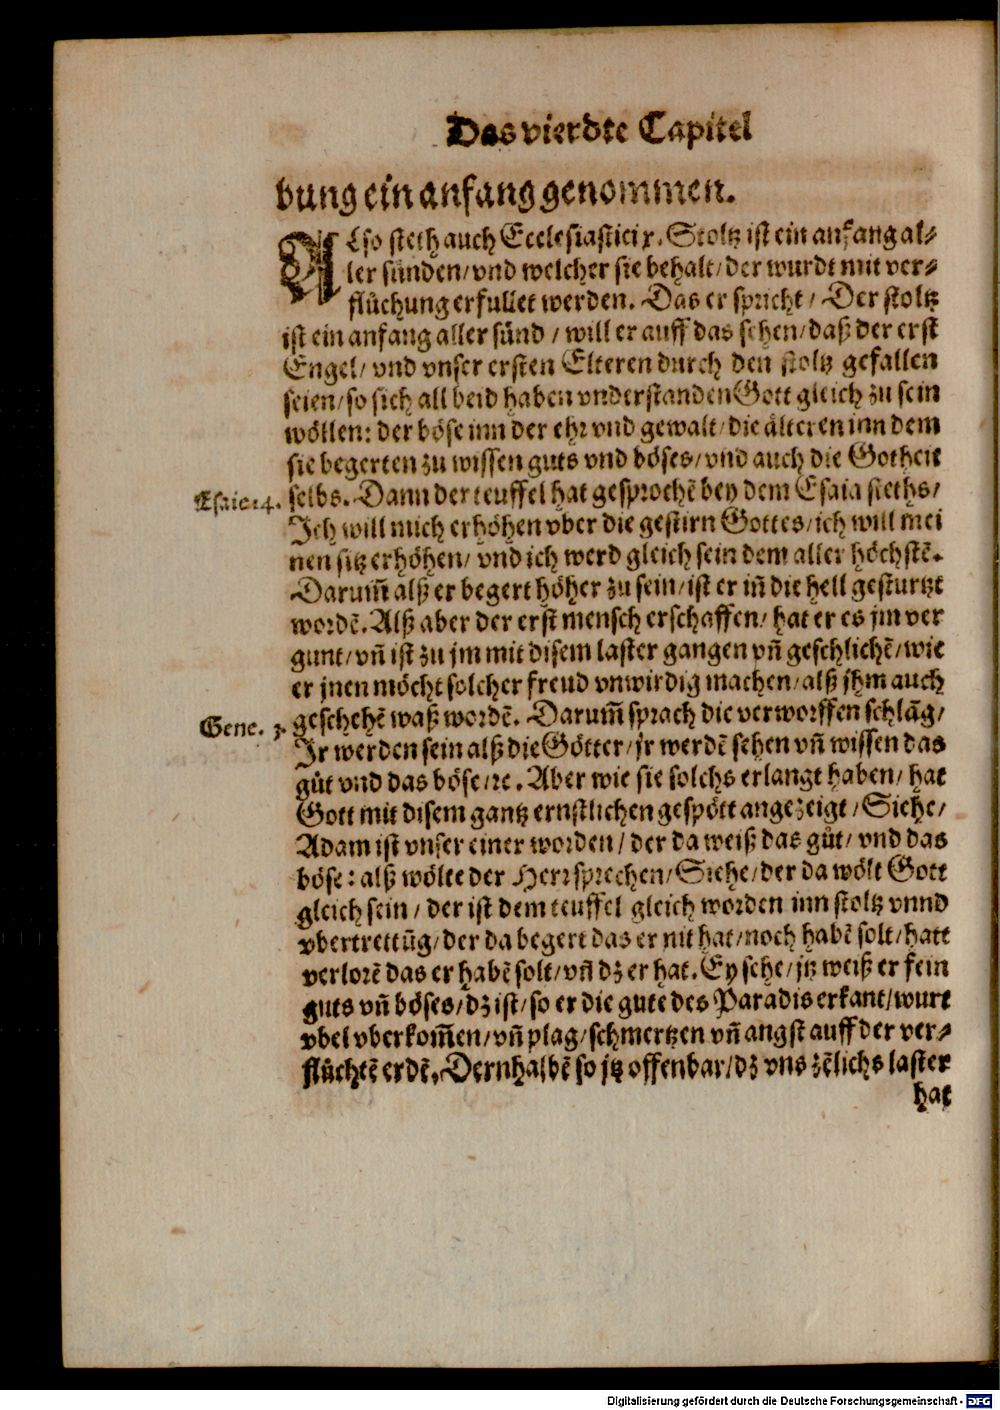 Das vierdte Capitel
bung ein anfang genommen.
ALso steth auch Ecclesiastici x. Stoltz ist ein anfang al-
ler sünden/ vnd welcher sie behalt/ der wurdt mit ver-
flůchung erfullet werden. Das er spricht/ Der stoltz
ist ein anfang aller sünd/ will er auff das sehen/ daß der erst
Engel/ vnd vnser ersten Elteren durch den stoltz gefallen
seien/ so sich all beid haben vnderstanden Gott gleich zu sein
wöllen: der böse inn der ehr vnd gewalt/ die älteren inn dem
sie begerten zu wissen guts vnd böses/ vnd auch die Gotheit
Esaie 14. selbs. Dann der teuffel hat gesprochē bey dem Esaia sieths/
Ich will mich erhöhen vber die gestirn Gottes/ ich will mei
nen sitz erhöhen/ vnd ich werd gleich sein dem aller höchstē.
Darum̄ alß er begert höher zu sein/ ist er in̄ die hell gesturtzt
wordē. Alß aber der erst mensch erschaffen/ hat er es jm ver
gunt/ vn̄ ist zu jm mit disem laster gangen vn̄ geschlichē/ wie
er jnen möcht solcher freud vnwirdig machen/ alß jhm auch
Gene. 3. geschehē waß wordē. Darum̄ sprach die verworffen schlāg/
Ir werden sein alß die Götter/ jr werdē sehen vn̄ wissen das
gůt vnd das böse/ ꝛc. Aber wie sie solchs erlangt haben/ hat
Gott mit disem gantz ernstlichen gespött angezeigt/ Siehe/
Adam ist vnser einer worden/ der da weiß das gůt/ vnd das
böse: alß wölte der Herr sprechen/ Siehe/ der da wölt Gott
gleich sein/ der ist dem teuffel gleich worden inn stoltz vnnd
vbertrettūg/ der da begert das er nit hat/ noch habē solt/ hatt
verlorē das er habē solt/ vn̄ dz er hat. Ey sehe/ jtz weiß er fein
guts vn̄ böses/ dz ist/ so er die gute des Paradis erkant/ wurt
vbel vberkom̄en/ vn̄ plag/ schmertzen vn̄ angst auff der ver-
flůchtē erdē. Dernhalbē so jtz offenbar/ dz vns zēlichs laster
hat
Digitalisierung gefördert durch die Deutsche Forschungsgemeinschaft - DFG